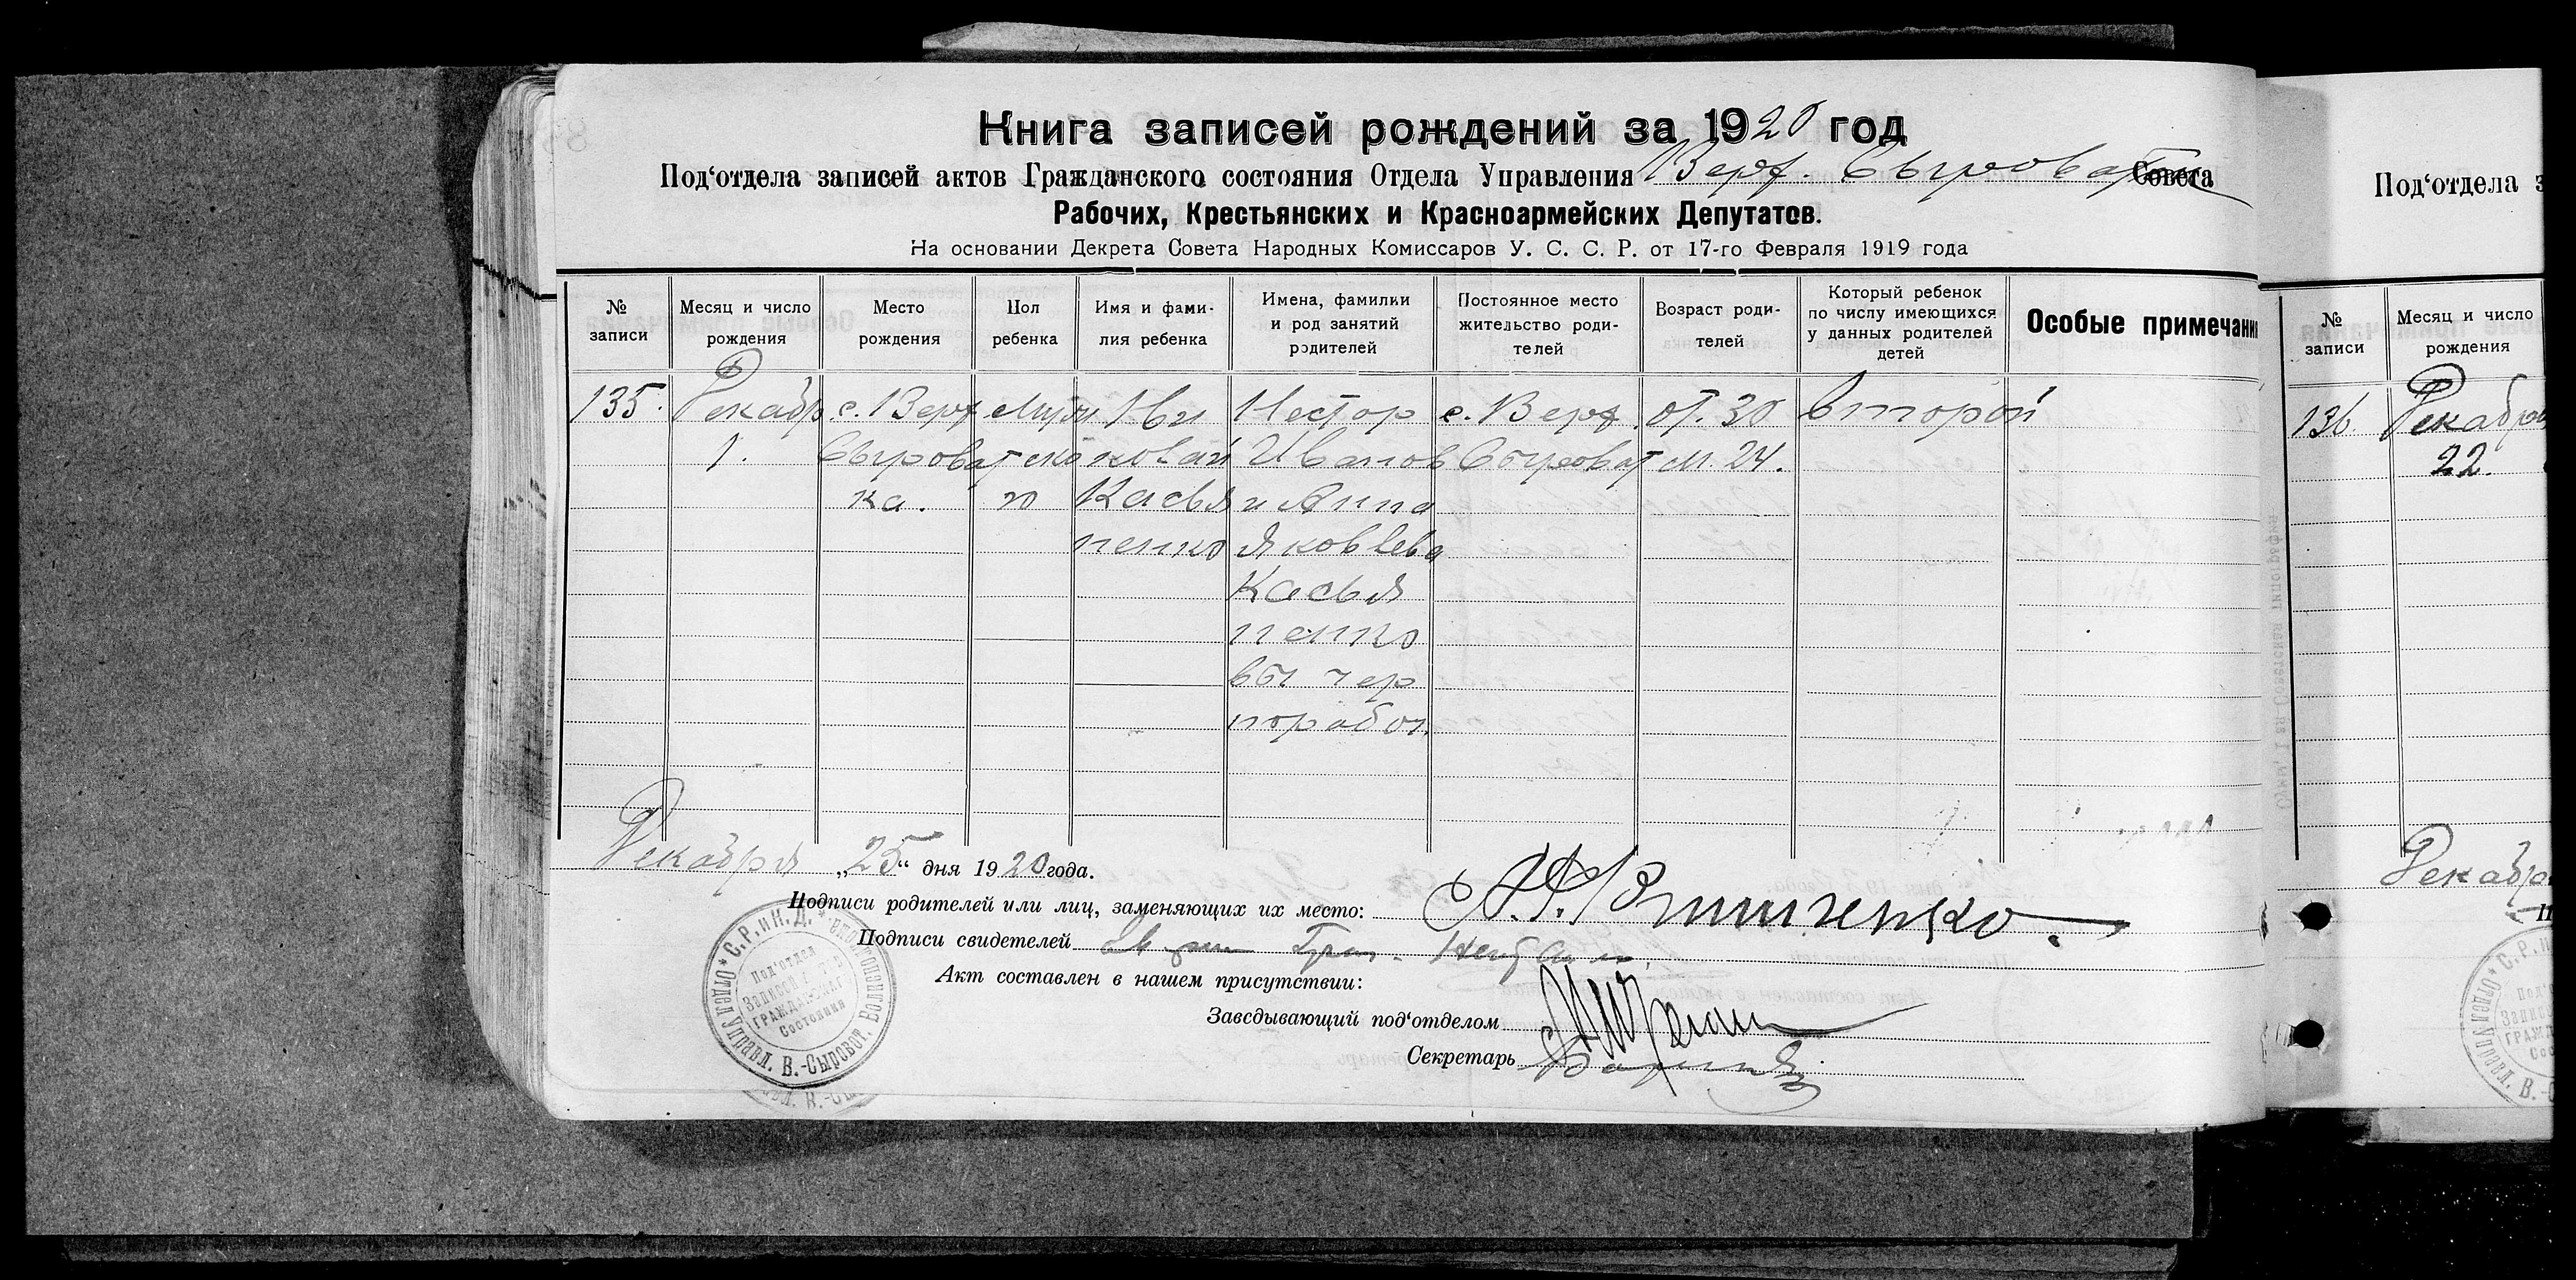 Книга записей рождений за 1920 год
Под'отдела записей актов Гражданского состояния Отдела Управления Верх. Сыроват Совета
Рабочих, Крестьянских и Красноармейских Депутатов.
На основании Декрета Совета Народных Комиссаров У. С. С. Р. от 17-го Февраля 1919 года
№ записи
Месяц и число рождения
Место рождения
Пол ребенка
Имя и фами-
лия ребенка
Имена, фамилии
и род занятий
родителей
Постоянное место
жительство роди-
телей
Возраст роди-
телей
Который ребенок
по числу имеющихся
у данных родителей
детей
Особые примечани
135.
Декабр
1.
с. Верх
Сыроват
ка.
Мужс
ско
го
Ни
колай
Касья
ненко
Нестор
Иванов
и Анна
Яковлева
Касья
ненко
вы чер
норабоч.
с. Верх
Сыроват
от. 30
м. 24.
второй
Декабря „25“ дня 1920 года.
Подписи родителей или лиц, заменяющих их место:
Подписи свидетелей
Акт составлен в нашем присутствии:
Заведывающий под'отделом
Секретарь
* С.Р.иК.Д. * Отдел Управл. В.-Сыроват.
Под'отдел
Записей
ГРАЖДАНСКОГО
Состояния
Под'отдела з
№ записи
Месяц и число рождения
136.
Декабря
22.
Декабр